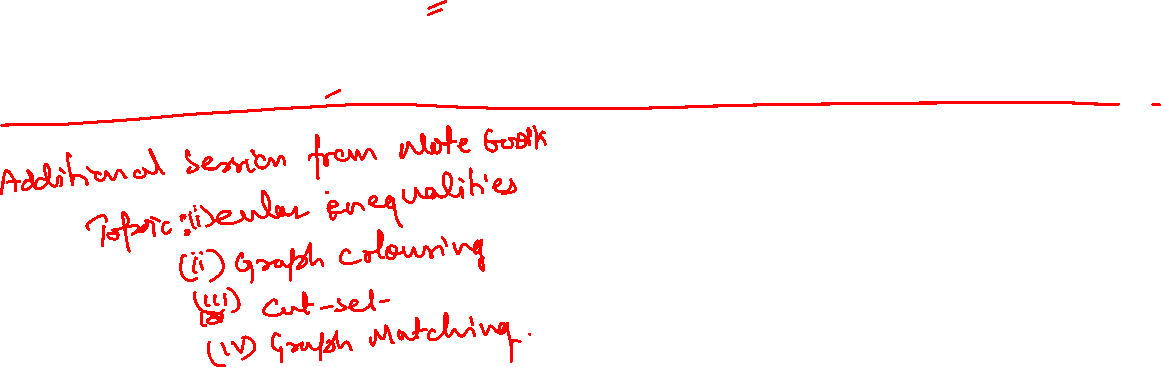 Additional Session from Note book
Topic: (i) euler inequalities
(ii) Graph colouring
(iii) cut-set-
(iv) Graph Matching.